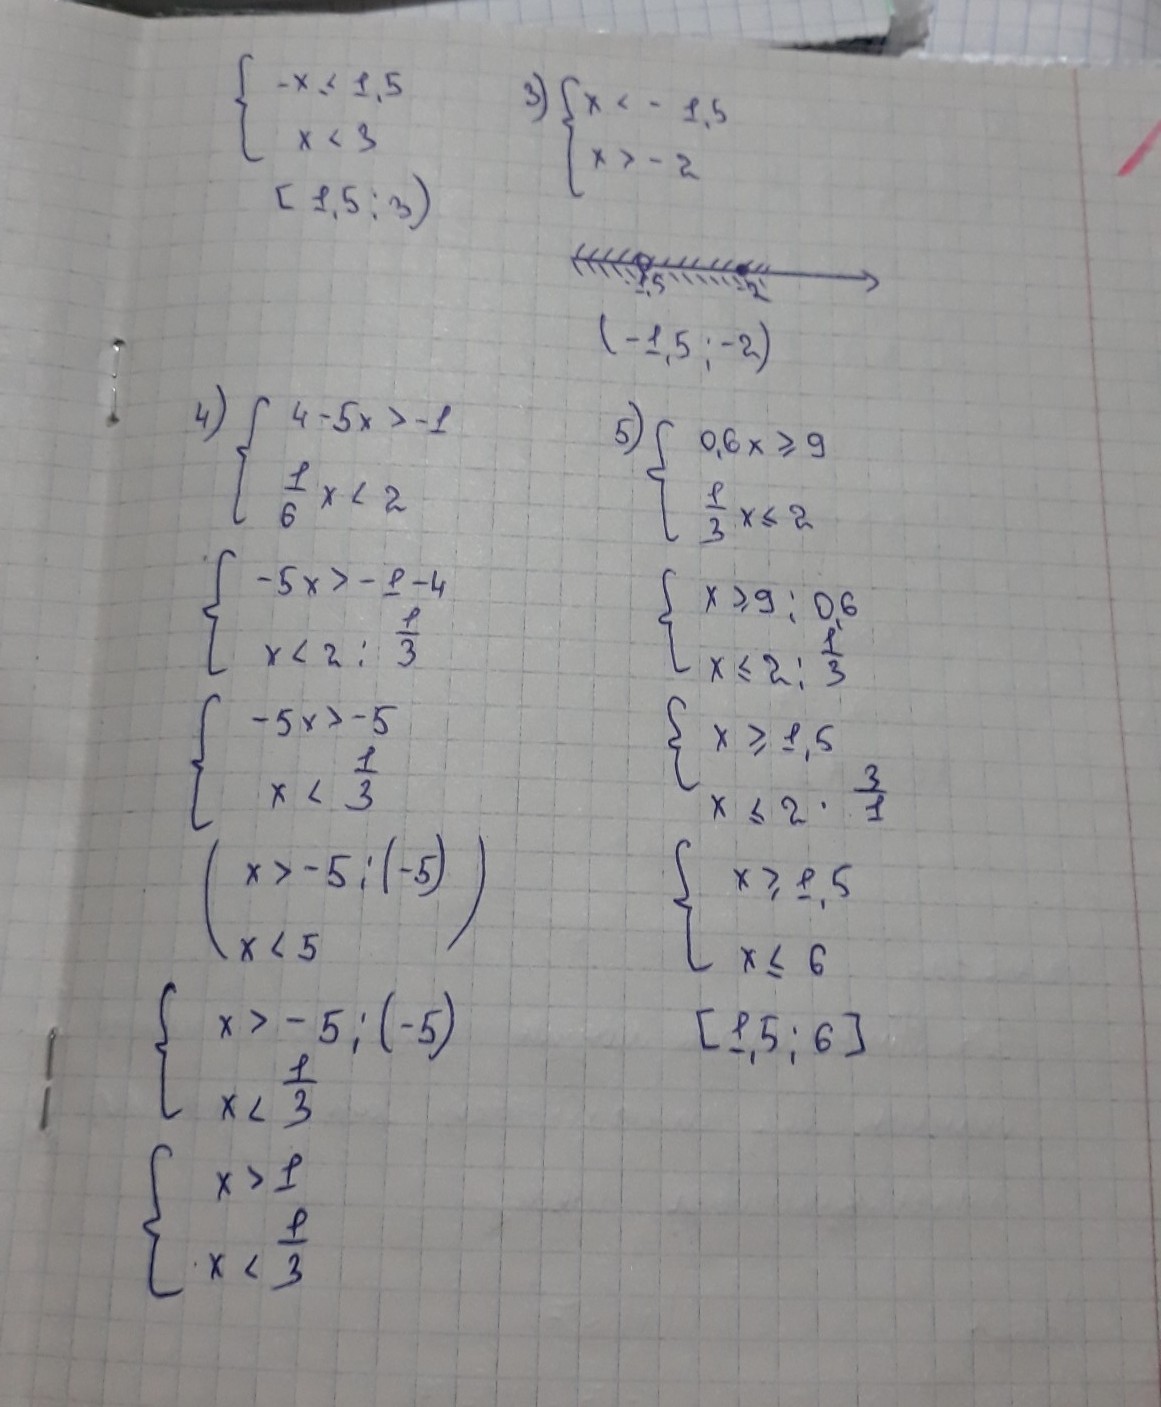 { -x ≤ 1,5
x < 3
[1,5; 3)
3) { x < -1,5
x > -2
-1,5 -2
(-1,5; -2)
4) { 4-5x > -1
1/6 x < 2
{ -5x > -1-4
x < 2 : 1/3
{ -5x > -5
x < 1/3
( x > -5 : (-5) )
x < 5
{ x > -5 : (-5)
x < 1/3
{ x > 1
x < 1/3
5) { 0,6x ≥ 9
1/3 x ≤ 2
{ x ≥ 9 : 0,6
x ≤ 2 : 1/3
{ x ≥ 1,5
x ≤ 2 · 3/1
{ x ≥ 1,5
x ≤ 6
[1,5; 6]